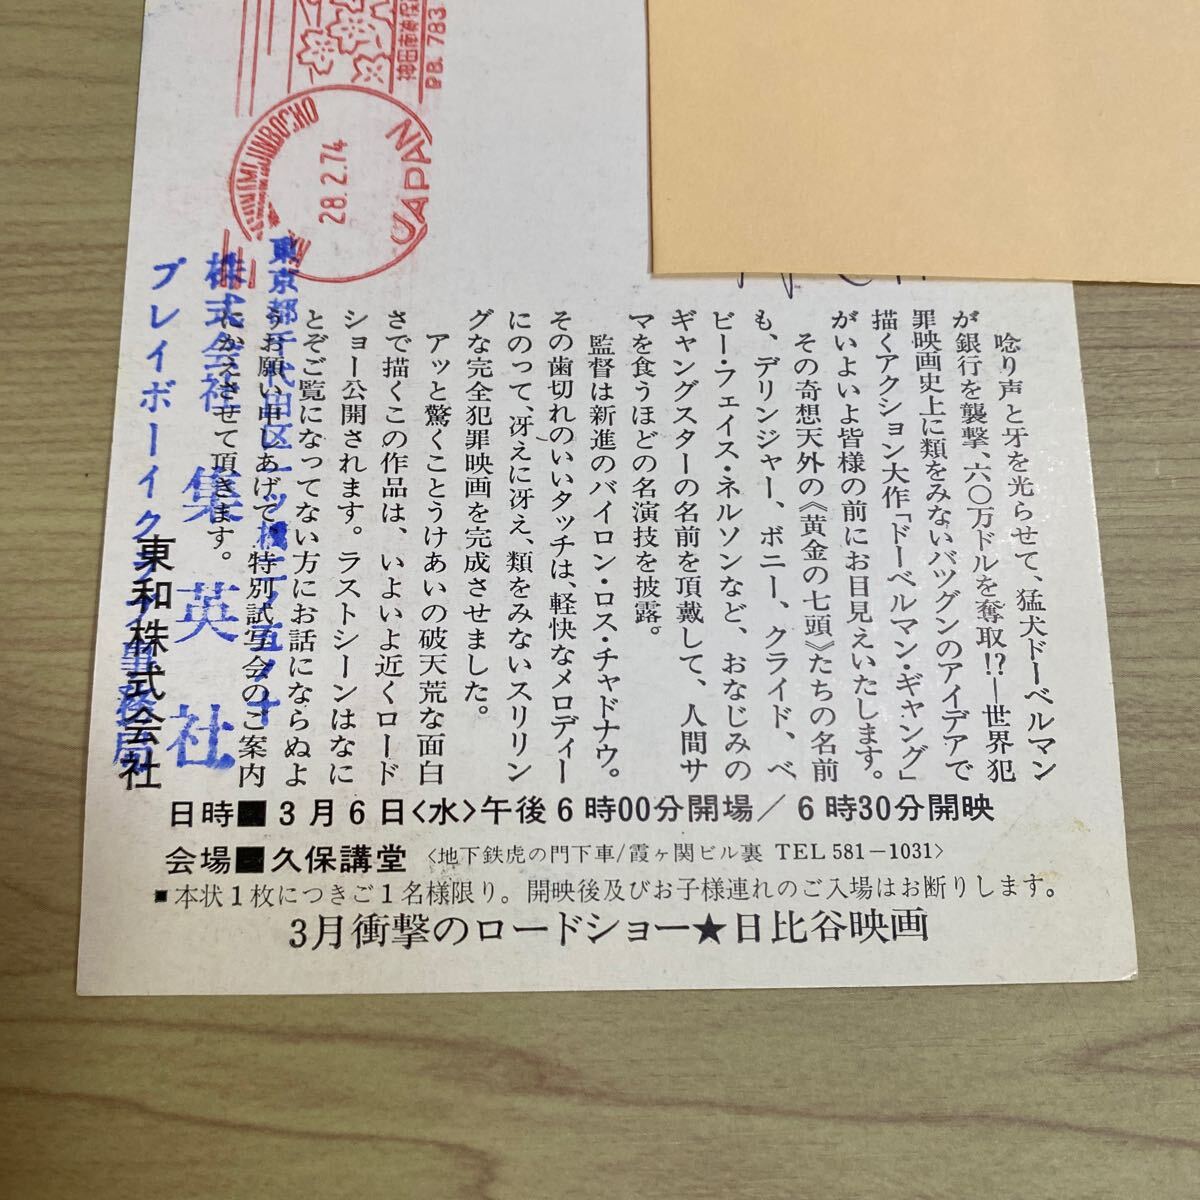 神田南神保町
PB. 783
KANDAMINAMIJIMBOCHO
28.2.74
JAPAN
唸り声と牙を光らせて、猛犬ドーベルマン
が銀行を襲撃、六〇万ドルを奪取!?—世界犯
罪映画史上に類をみないバツグンのアイデアで
描くアクション大作「ドーベルマン・ギャング」
がいよいよ皆様の前にお目見えいたします。
その奇想天外の《黄金の七頭》たちの名前
も、デリンジャー、ボニー、クライド、ベ
ビー・フェイス・ネルソンなど、おなじみの
ギャングスターの名前を頂戴して、人間サ
マを食うほどの名演技を披露。
監督は新進のバイロン・ロス・チャドナウ。
その歯切れのいいタッチは、軽快なメロディー
にのって、冴えに冴え、類をみないスリリン
グな完全犯罪映画を完成させました。
アッと驚くことうけあいの破天荒な面白
さで描くこの作品は、いよいよ近くロード
ショー公開されます。ラストシーンはなに
とぞご覧になってない方にお話にならぬよ
うお願い申しあげて、特別試写会のご案内
にかえさせて頂きます。
東和株式会社
東京都千代田区一ッ橋二ノ五ノ十
株式会社 集英社
プレイボーイクラブ事務局
日時■3月6日〈水〉午後6時00分開場/6時30分開映
会場■久保講堂〈地下鉄虎の門下車/霞ヶ関ビル裏 TEL 581-1031〉
■本状1枚につきご1名様限り。開映後及びお子様連れのご入場はお断りします。
3月衝撃のロードショー★日比谷映画